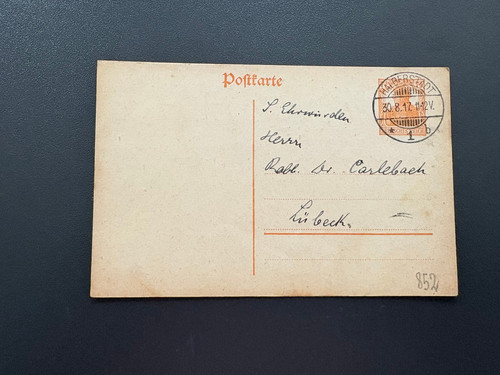 Postkarte
HALBERSTADT
30.8.17.11-12V.
* 1 b
S. Ehrwürden
Herrn
Rabb. Dr. Carlebach
Lübeck.
852